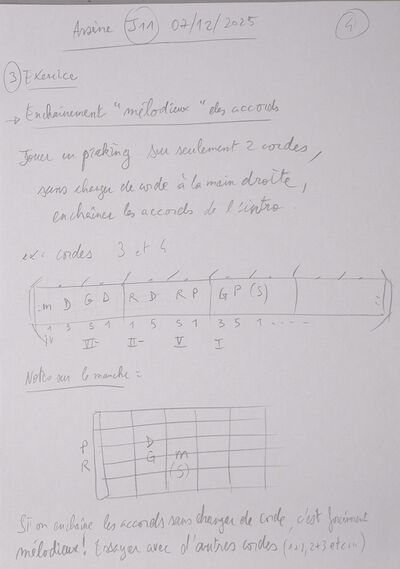 Arsène J11 07/12/2025 4
3 Exercice
→ Enchaînement "mélodieux" des accords
Jouer en picking sur seulement 2 cordes,
sans changer de corde à la main droite,
enchaîner les accords de l'intro.
ex: cordes 3 et 4
m D G D R D R P G P (S)
1 3 5 1 1 5 5 1 3 5 1 ....
IV VI- II- V I
Notes sur le manche =
P D
R G m
(S)
Si on enchaîne les accords sans changer de corde, c'est forcément
mélodieux! Essayer avec d'autres cordes (1+2, 2+3 etc...)